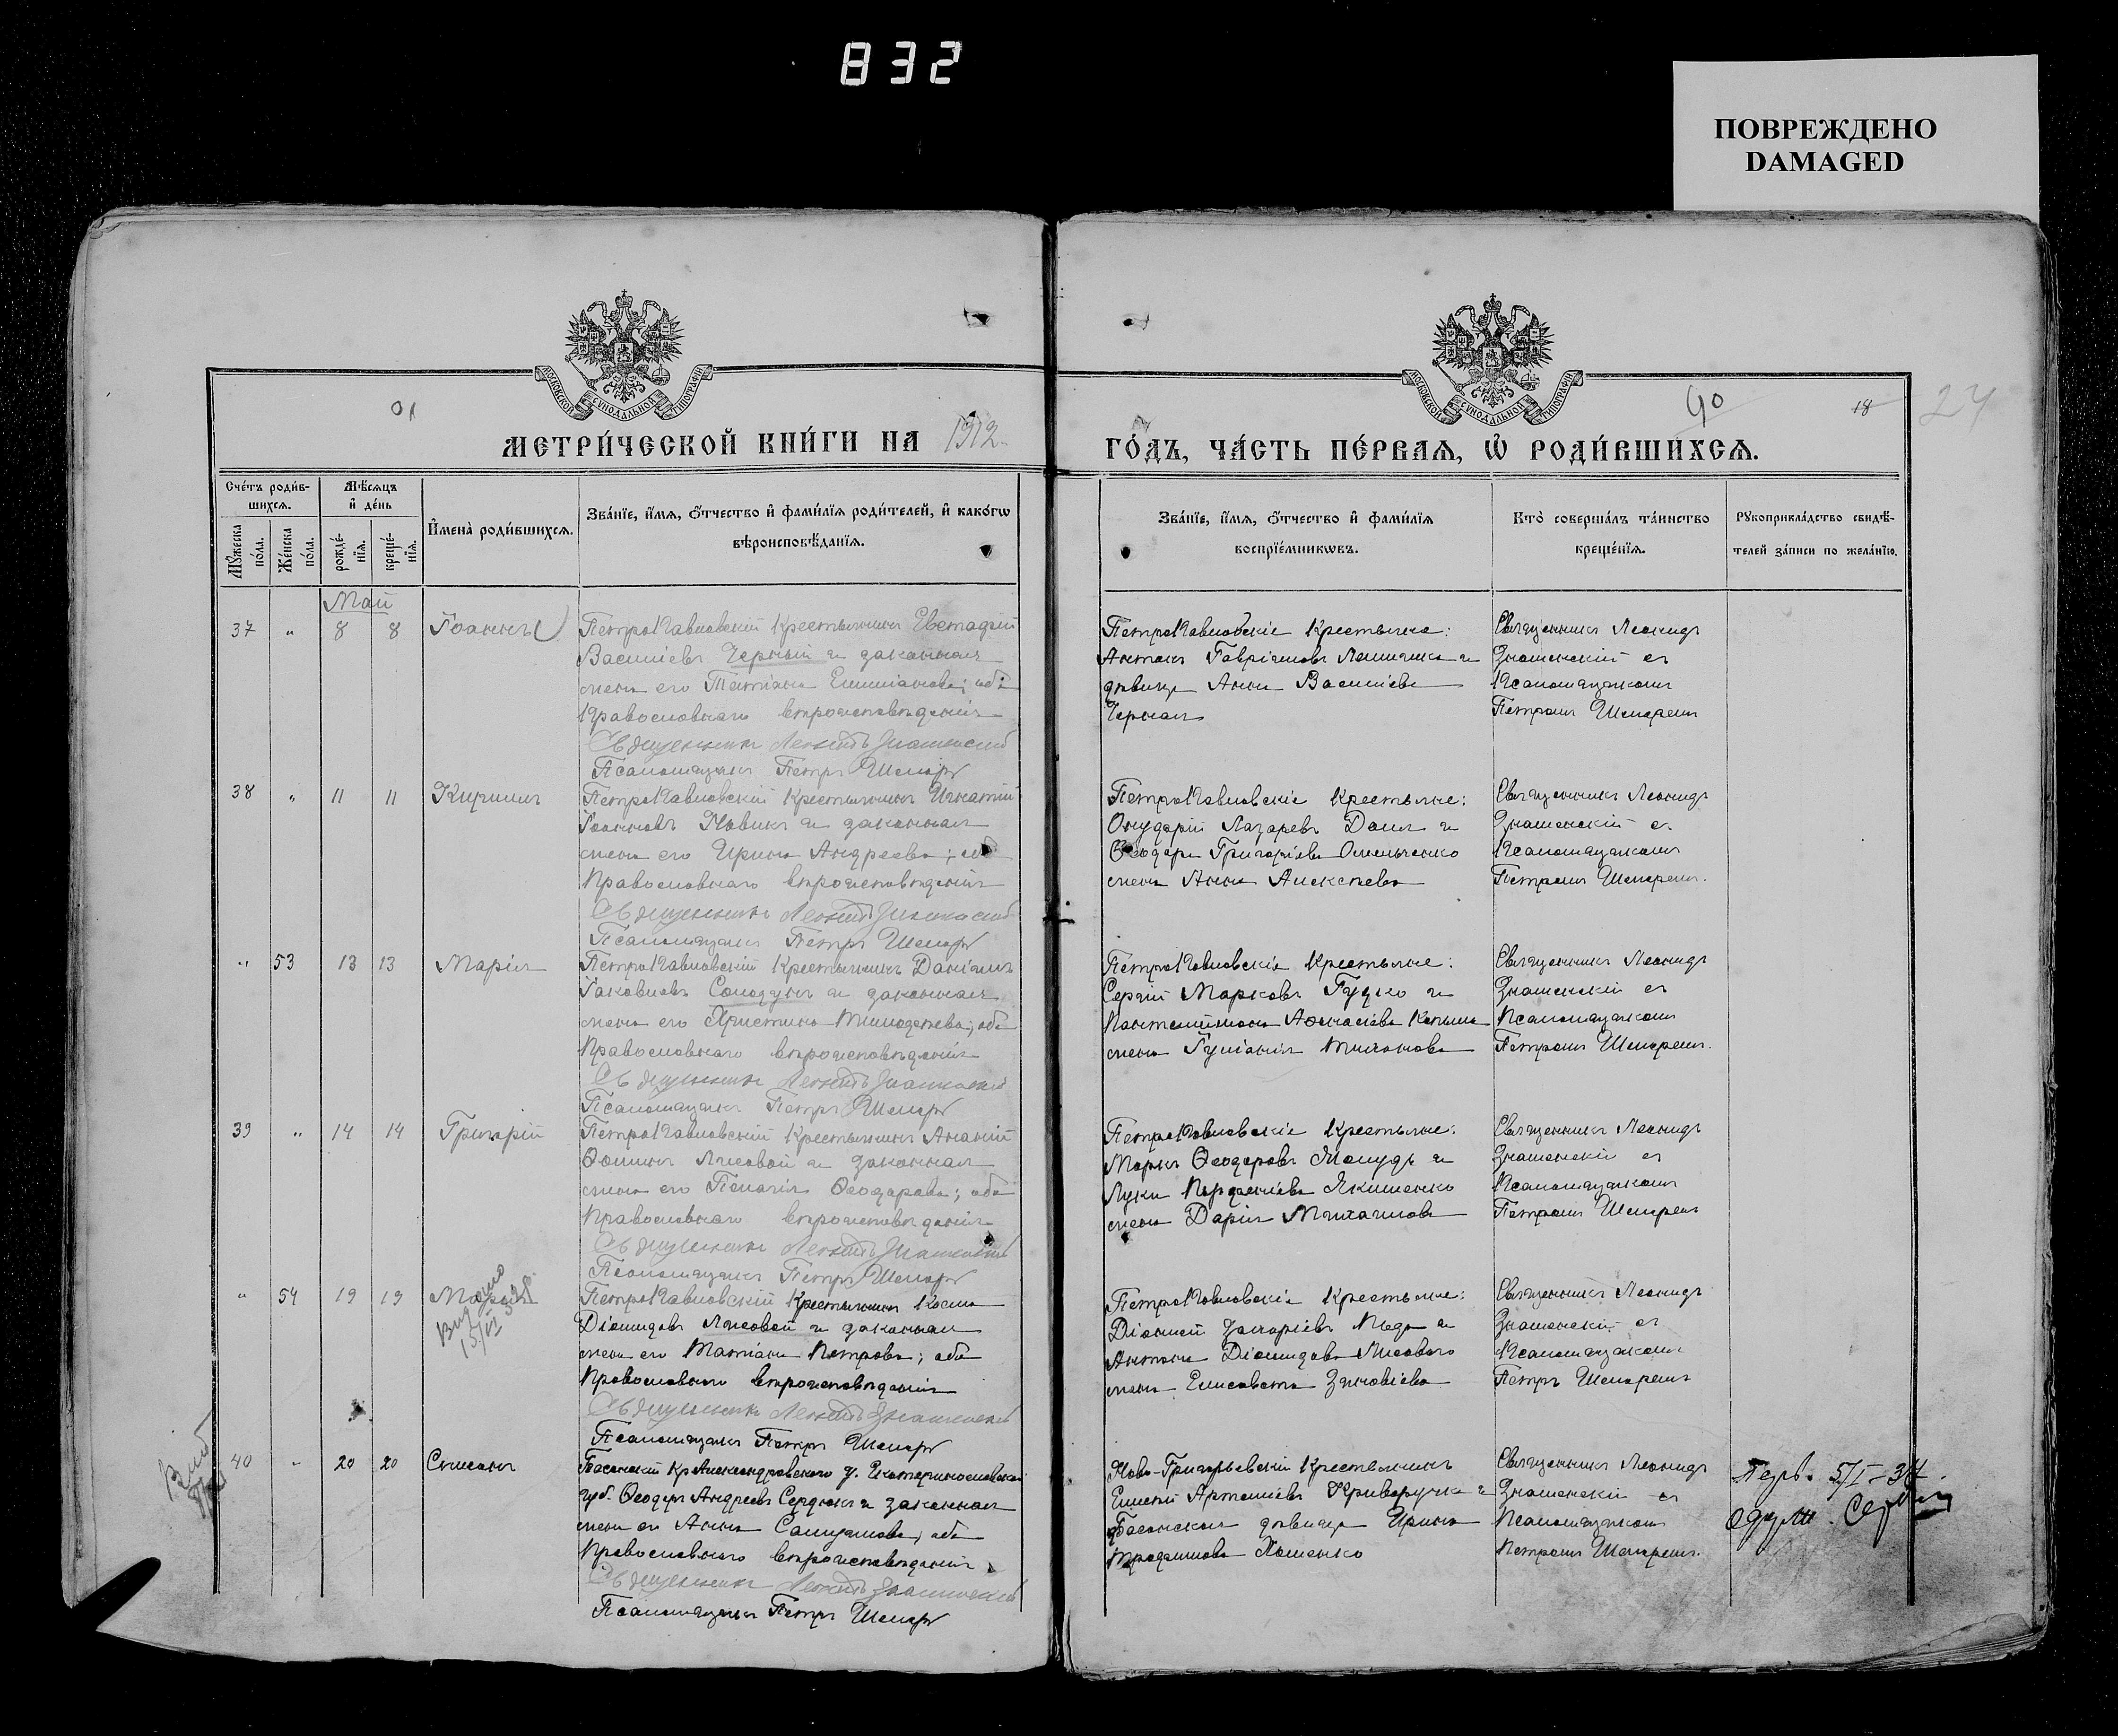 832
ПОВРЕЖДЕНО
DAMAGED
МОСКОВСКОЙ СѴНОДАЛЬНОЙ ТИПОГРАФІИ
МОСКОВСКОЙ СѴНОДАЛЬНОЙ ТИПОГРАФІИ
90
18
24
МЕТРИ́ЧЕСКОЙ КНИ́ГИ НА 1912
ГО́ДЪ, ЧА́СТЬ ПЕ́РВАѦ, Ѡ҆ РОДИ́ВШИХСѦ.
Сче́тъ роди́вшихсѧ.
Мѣ́сѧцъ и҆ де́нь
Мꙋ́жеска по́ла.
Же́нска по́ла.
рожде́нїѧ.
креще́нїѧ.
И҆мена̀ роди́вшихсѧ.
Зва́нїе, и҆́мѧ, ѻ҆́тчество и҆ фами́лїѧ роди́телей, и҆ како́гѡ
вѣроисповѣ́данїѧ.
Зва́нїе, и҆́мѧ, ѻ҆́тчество и҆ фами́лїѧ
воспрїе́мникѡвъ.
Кто̀ соверша́лъ та́инство
креще́нїѧ.
Рꙋкоприкла́дство свидѣ́-
телей за́писи по жела́нїю.
Май
37 " 8 8 Іоаннъ
ПетроПавловскій крестьянинъ Евстафій
Васильевъ Черный и законная
жена его Татіана Емиліанова; оба
Православнаго вероисповѣданія
Священникъ Леонидъ Знаменскій
Псаломщикъ Петръ Шемаръ
ПетроПавловскіе крестьяне:
Антонъ Гавріиловъ и
дѣвица Анна Васильева
Черная
Священникъ Леонидъ
Знаменскій съ
Псаломщикомъ
Петромъ
38 " 11 11 Кириллъ
ПетроПавловскій крестьянинъ Игнатій
Іоанновъ Новикъ и законная
жена его Ирина Андреева; оба
Православнаго вероисповѣданія
Священникъ Леонидъ Знаменскій
Псаломщикъ Петръ
ПетроПавловскіе крестьяне:
Онуфрій Лазаревъ и
Ѳеодора Григоріева Омельченко
жена Анна Алексѣева
Священникъ Леонидъ
Знаменскій съ
Псаломщикомъ
Петромъ
" 53 13 13 Марія
ПетроПавловскій крестьянинъ Даніилъ
Іаковлевъ Солодунъ и законная
жена его Христина Тимоѳеева; оба
Православнаго вероисповѣданія
Священникъ Леонидъ Знаменскій
Псаломщикъ Петръ
ПетроПавловскіе крестьяне:
Сергій Марковъ Гудко и
Пантелеимона Аѳанасіева
жена Іуліанія
Священникъ Леонидъ
Знаменскій съ
Псаломщикомъ
Петромъ
39 " 14 14 Григорій
ПетроПавловскій крестьянинъ Ананій
Ѳоминъ Лисовой и законная
жена его Пелагія Ѳеодорова; оба
Православнаго вероисповѣданія
Священникъ Леонидъ Знаменскій
Псаломщикъ Петръ
ПетроПавловскіе крестьяне:
Маркъ Ѳеодоровъ и
Луки Якименко
жена Дарія Михаилова
Священникъ Леонидъ
Знаменскій съ
Псаломщикомъ
Петромъ
" 54 19 19
ПетроПавловскій крестьянинъ Косма
Діомидовъ Лисовой и законная
жена его Татіана Петрова; оба
Православнаго вероисповѣданія
Священникъ Леонидъ Знаменскій
Псаломщикъ Петръ
ПетроПавловскіе крестьяне:
Діонисій Захаріевъ и
Антона Діомидова Лисового
жена Елисавета Зиновіева
Священникъ Леонидъ
Знаменскій съ
Псаломщикомъ
Петръ
40 " 20 20 Симеонъ
Басанскій кр Александровского у. Екатеринославской
губ. Ѳеодоръ Андреевъ Сердюкъ и законная
жена его Анна Самуилова; оба
Православнаго вероисповѣданія
Священникъ Леонидъ Знаменскій
Псаломщикъ Петръ
Ново-Григорьевскій крестьянинъ
Артеміевъ Криворучка и
Басанская дѣвица Ирина
Священникъ Леонидъ
Знаменскій съ
Псаломщикомъ
Петромъ
5/I-34